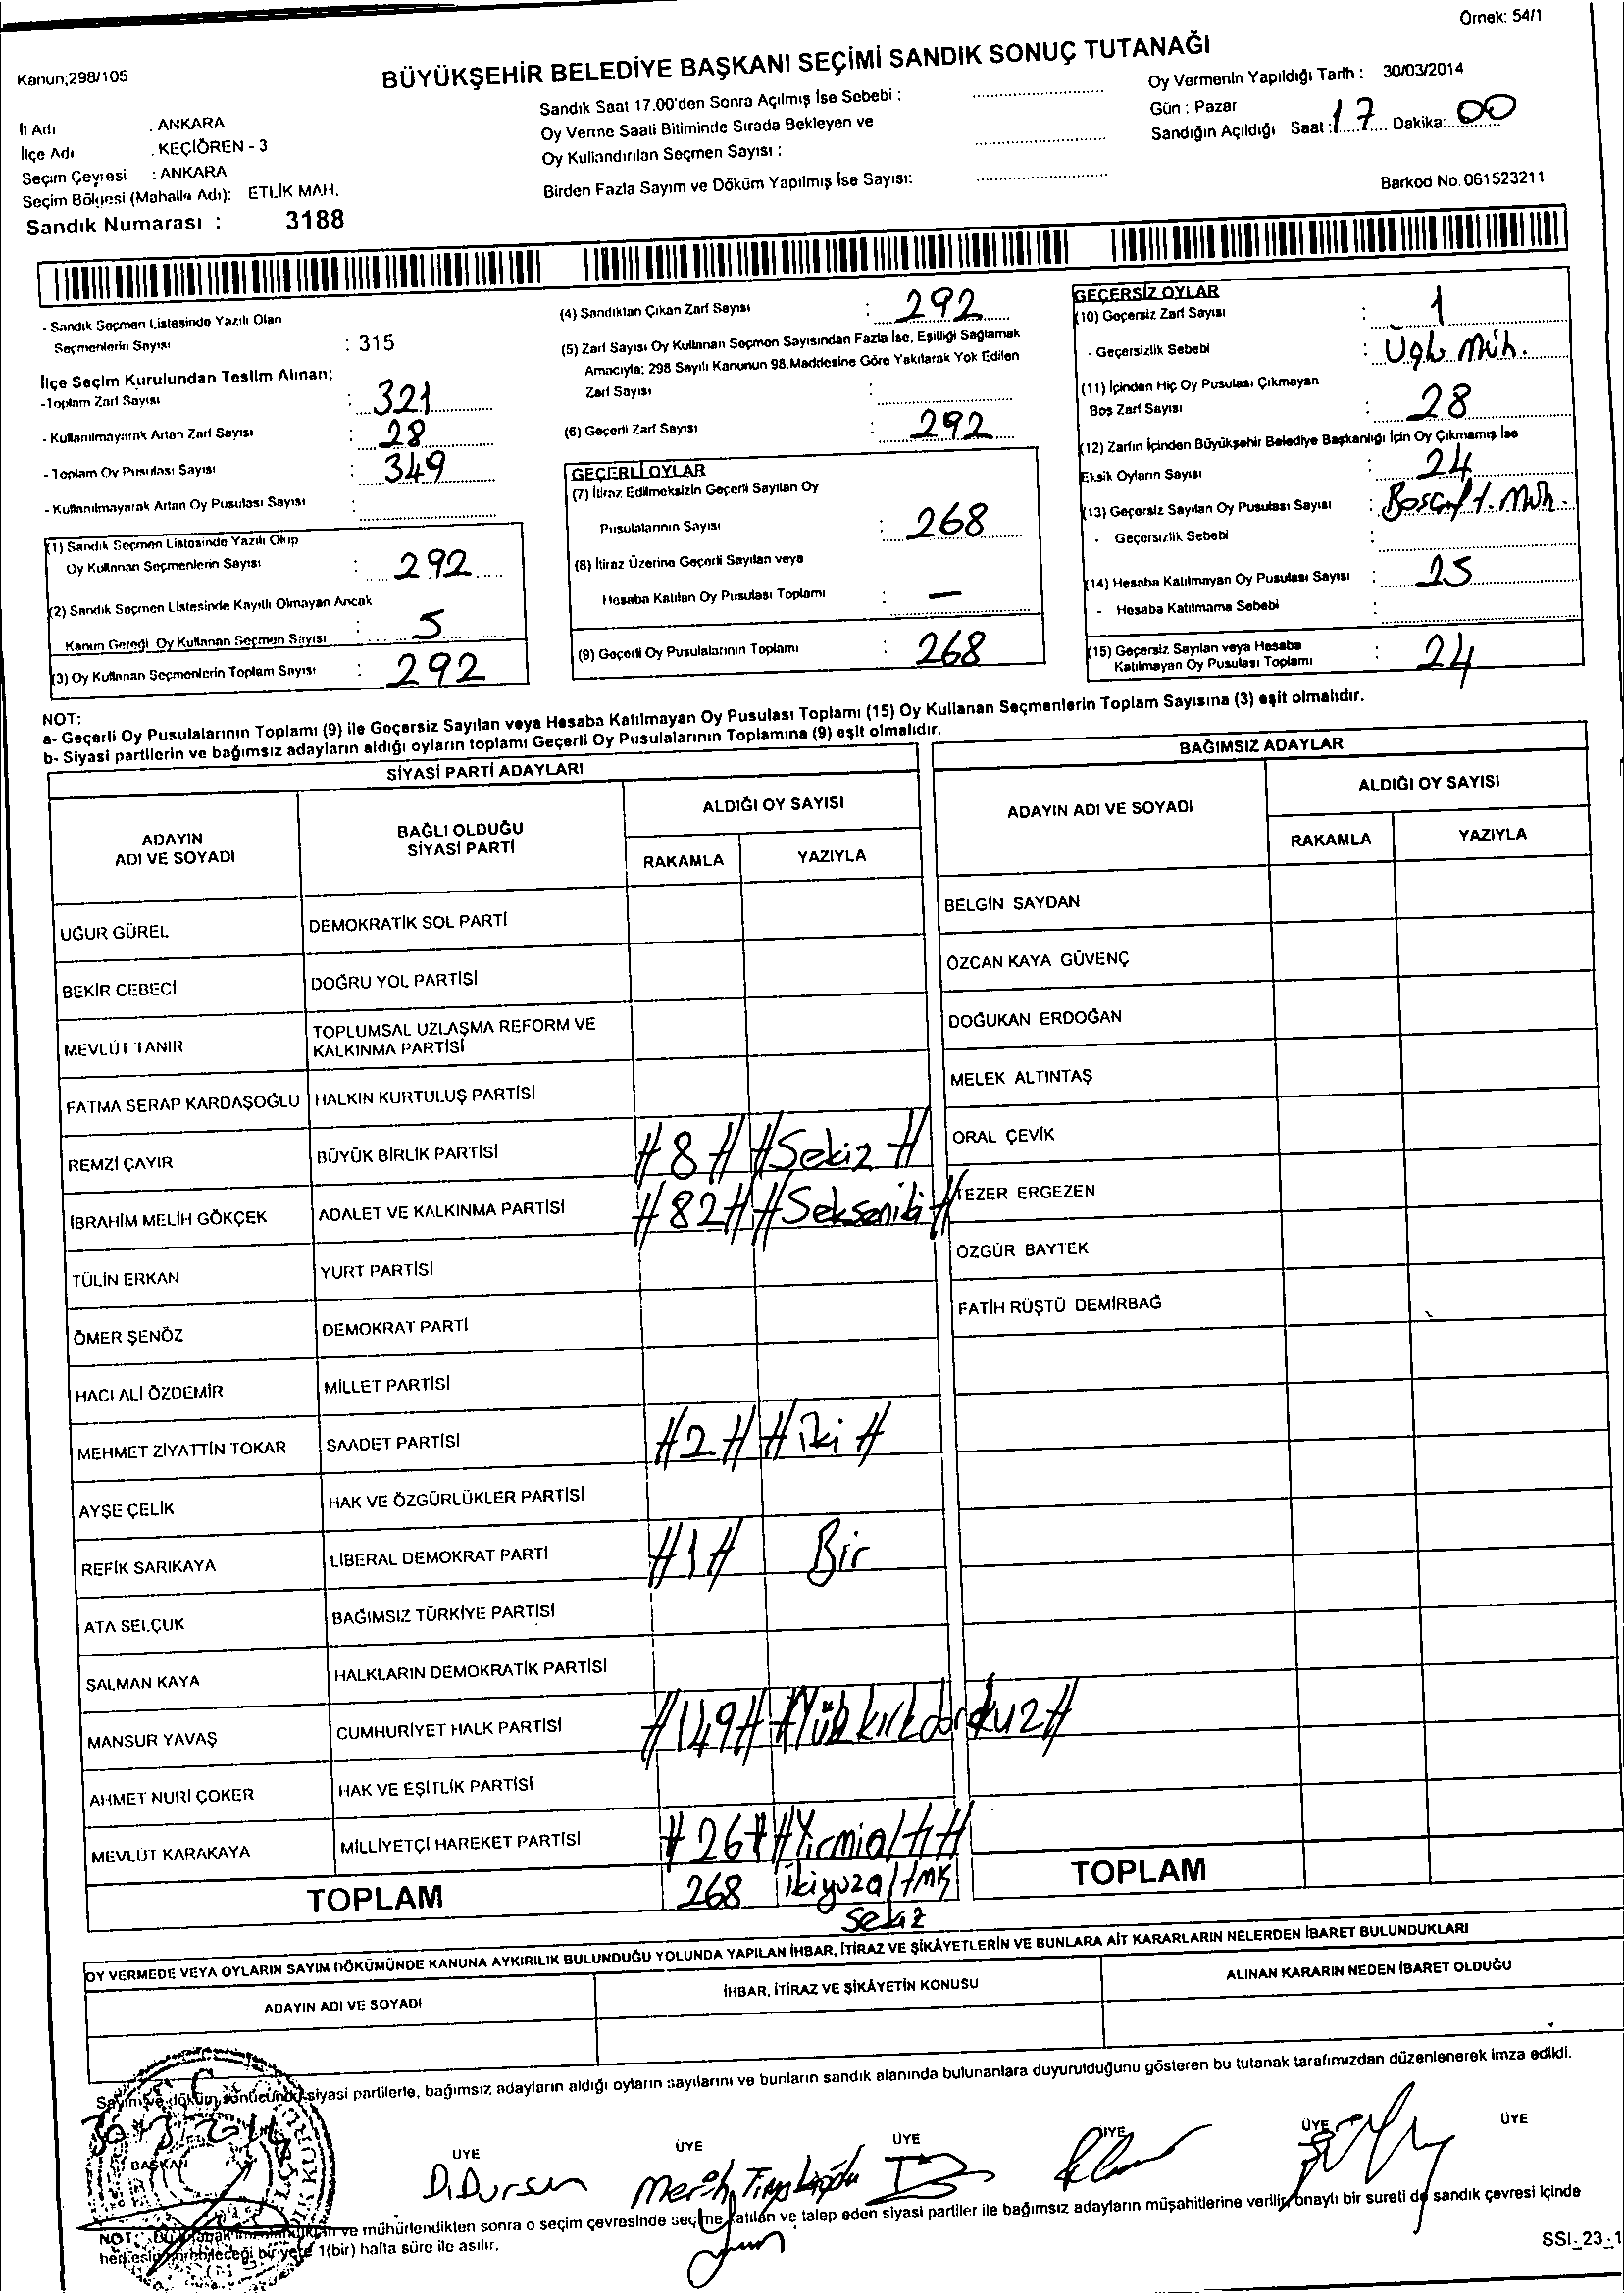 Örnek: 54/1
Kanun;298/105
BÜYÜKŞEHİR BELEDİYE BAŞKANI SEÇİMİ SANDIK SONUÇ TUTANAĞI
İl Adı : ANKARA
İlçe Adı : KEÇİÖREN - 3
Seçim Çevresi : ANKARA
Seçim Bölgesi (Mahalle Adı): ETLİK MAH.
Sandık Numarası : 3188
Sandık Saat 17.00'den Sonra Açılmış İse Sebebi :
Oy Verme Saati Bitiminde Sırada Bekleyen ve
Oy Kullandırılan Seçmen Sayısı :
Birden Fazla Sayım ve Döküm Yapılmış İse Sayısı:
Oy Vermenin Yapıldığı Tarih : 30/03/2014
Gün : Pazar
Sandığın Açıldığı Saat : 17 Dakika: 00
Barkod No: 061523211
- Sandık Seçmen Listesinde Yazılı Olan
Seçmenlerin Sayısı : 315
İlçe Seçim Kurulundan Teslim Alınan;
-Toplam Zarf Sayısı : 321
- Kullanılmayarak Artan Zarf Sayısı : 28
- Toplam Oy Pusulası Sayısı : 349
- Kullanılmayarak Artan Oy Pusulası Sayısı :
(1) Sandık Seçmen Listesinde Yazılı Olup
Oy Kullanan Seçmenlerin Sayısı : 292
(2) Sandık Seçmen Listesinde Kayıtlı Olmayan Ancak
Kanun Gereği Oy Kullanan Seçmen Sayısı : 5
(3) Oy Kullanan Seçmenlerin Toplam Sayısı : 292
(4) Sandıktan Çıkan Zarf Sayısı : 292
(5) Zarf Sayısı Oy Kullanan Seçmen Sayısından Fazla İse, Eşitliği Sağlamak
Amacıyla; 298 Sayılı Kanunun 98.Maddesine Göre Yakılarak Yok Edilen
Zarf Sayısı :
(6) Geçerli Zarf Sayısı : 292
GEÇERLİ OYLAR
(7) İtiraz Edilmeksizin Geçerli Sayılan Oy
Pusulalarının Sayısı : 268
(8) İtiraz Üzerine Geçerli Sayılan veya
Hesaba Katılan Oy Pusulası Toplamı : —
(9) Geçerli Oy Pusulalarının Toplamı : 268
GEÇERSİZ OYLAR
(10) Geçersiz Zarf Sayısı : 1
- Geçersizlik Sebebi : Müh.
(11) İçinden Hiç Oy Pusulası Çıkmayan
Boş Zarf Sayısı : 28
(12) Zarfın İçinden Büyükşehir Belediye Başkanlığı İçin Oy Çıkmamış İse
Eksik Oyların Sayısı : 24
(13) Geçersiz Sayılan Oy Pusulası Sayısı : Müh.
- Geçersizlik Sebebi :
(14) Hesaba Katılmayan Oy Pusulası Sayısı : 25
- Hesaba Katılmama Sebebi :
(15) Geçersiz Sayılan veya Hesaba
Katılmayan Oy Pusulası Toplamı : 24
NOT:
a- Geçerli Oy Pusulalarının Toplamı (9) ile Geçersiz Sayılan veya Hesaba Katılmayan Oy Pusulası Toplamı (15) Oy Kullanan Seçmenlerin Toplam Sayısına (3) eşit olmalıdır.
b- Siyasi partilerin ve bağımsız adayların aldığı oyların toplamı Geçerli Oy Pusulalarının Toplamına (9) eşit olmalıdır.
SİYASİ PARTİ ADAYLARI
ADAYIN ADI VE SOYADI
BAĞLI OLDUĞU SİYASİ PARTİ
ALDIĞI OY SAYISI
RAKAMLA YAZIYLA
UĞUR GÜREL DEMOKRATİK SOL PARTİ
BEKİR CEBECİ DOĞRU YOL PARTİSİ
MEVLÜT TANIR TOPLUMSAL UZLAŞMA REFORM VE KALKINMA PARTİSİ
FATMA SERAP KARDAŞOĞLU HALKIN KURTULUŞ PARTİSİ
REMZİ ÇAYIR BÜYÜK BİRLİK PARTİSİ #8# #Sekiz#
İBRAHİM MELİH GÖKÇEK ADALET VE KALKINMA PARTİSİ #82# #Sekseniki#
TÜLİN ERKAN YURT PARTİSİ
ÖMER ŞENÖZ DEMOKRAT PARTİ
HACI ALİ ÖZDEMİR MİLLET PARTİSİ
MEHMET ZİYATTİN TOKAR SAADET PARTİSİ #2# #iki#
AYŞE ÇELİK HAK VE ÖZGÜRLÜKLER PARTİSİ
REFİK SARIKAYA LİBERAL DEMOKRAT PARTİ #1# Bir
ATA SELÇUK BAĞIMSIZ TÜRKİYE PARTİSİ
SALMAN KAYA HALKLARIN DEMOKRATİK PARTİSİ
MANSUR YAVAŞ CUMHURİYET HALK PARTİSİ #149# #Yüzkırkdokuz#
AHMET NURİ ÇOKER HAK VE EŞİTLİK PARTİSİ
MEVLÜT KARAKAYA MİLLİYETÇİ HAREKET PARTİSİ #26# #Yirmialtı#
TOPLAM 268 ikiyüzaltmış
sekiz
BAĞIMSIZ ADAYLAR
ADAYIN ADI VE SOYADI
ALDIĞI OY SAYISI
RAKAMLA YAZIYLA
BELGİN SAYDAN
ÖZCAN KAYA GÜVENÇ
DOĞUKAN ERDOĞAN
MELEK ALTINTAŞ
ORAL ÇEVİK
TEZER ERGEZEN
ÖZGÜR BAYTEK
FATİH RÜŞTÜ DEMİRBAĞ
TOPLAM
OY VERMEDE VEYA OYLARIN SAYIM DÖKÜMÜNDE KANUNA AYKIRILIK BULUNDUĞU YOLUNDA YAPILAN İHBAR, İTİRAZ VE ŞİKÂYETLERİN VE BUNLARA AİT KARARLARIN NELERDEN İBARET BULUNDUKLARI
ADAYIN ADI VE SOYADI
İHBAR, İTİRAZ VE ŞİKÂYETİN KONUSU
ALINAN KARARIN NEDEN İBARET OLDUĞU
Sayım ve döküm sonucundaki siyasi partilerle, bağımsız adayların aldığı oyların sayılarını ve bunların sandık alanında bulunanlara duyurulduğunu gösteren bu tutanak tarafımızdan düzenlenerek imza edildi.
BAŞKAN ÜYE ÜYE ÜYE ÜYE ÜYE ÜYE
D.Dursun
NOT: ve mühürlendikten sonra o seçim çevresinde seçime katılan ve talep eden siyasi partiler ile bağımsız adayların müşahitlerine verilir, onaylı bir sureti de sandık çevresi içinde
herkesin görebileceği bir yere 1(bir) hafta süre ile asılır.
SSI_23_1